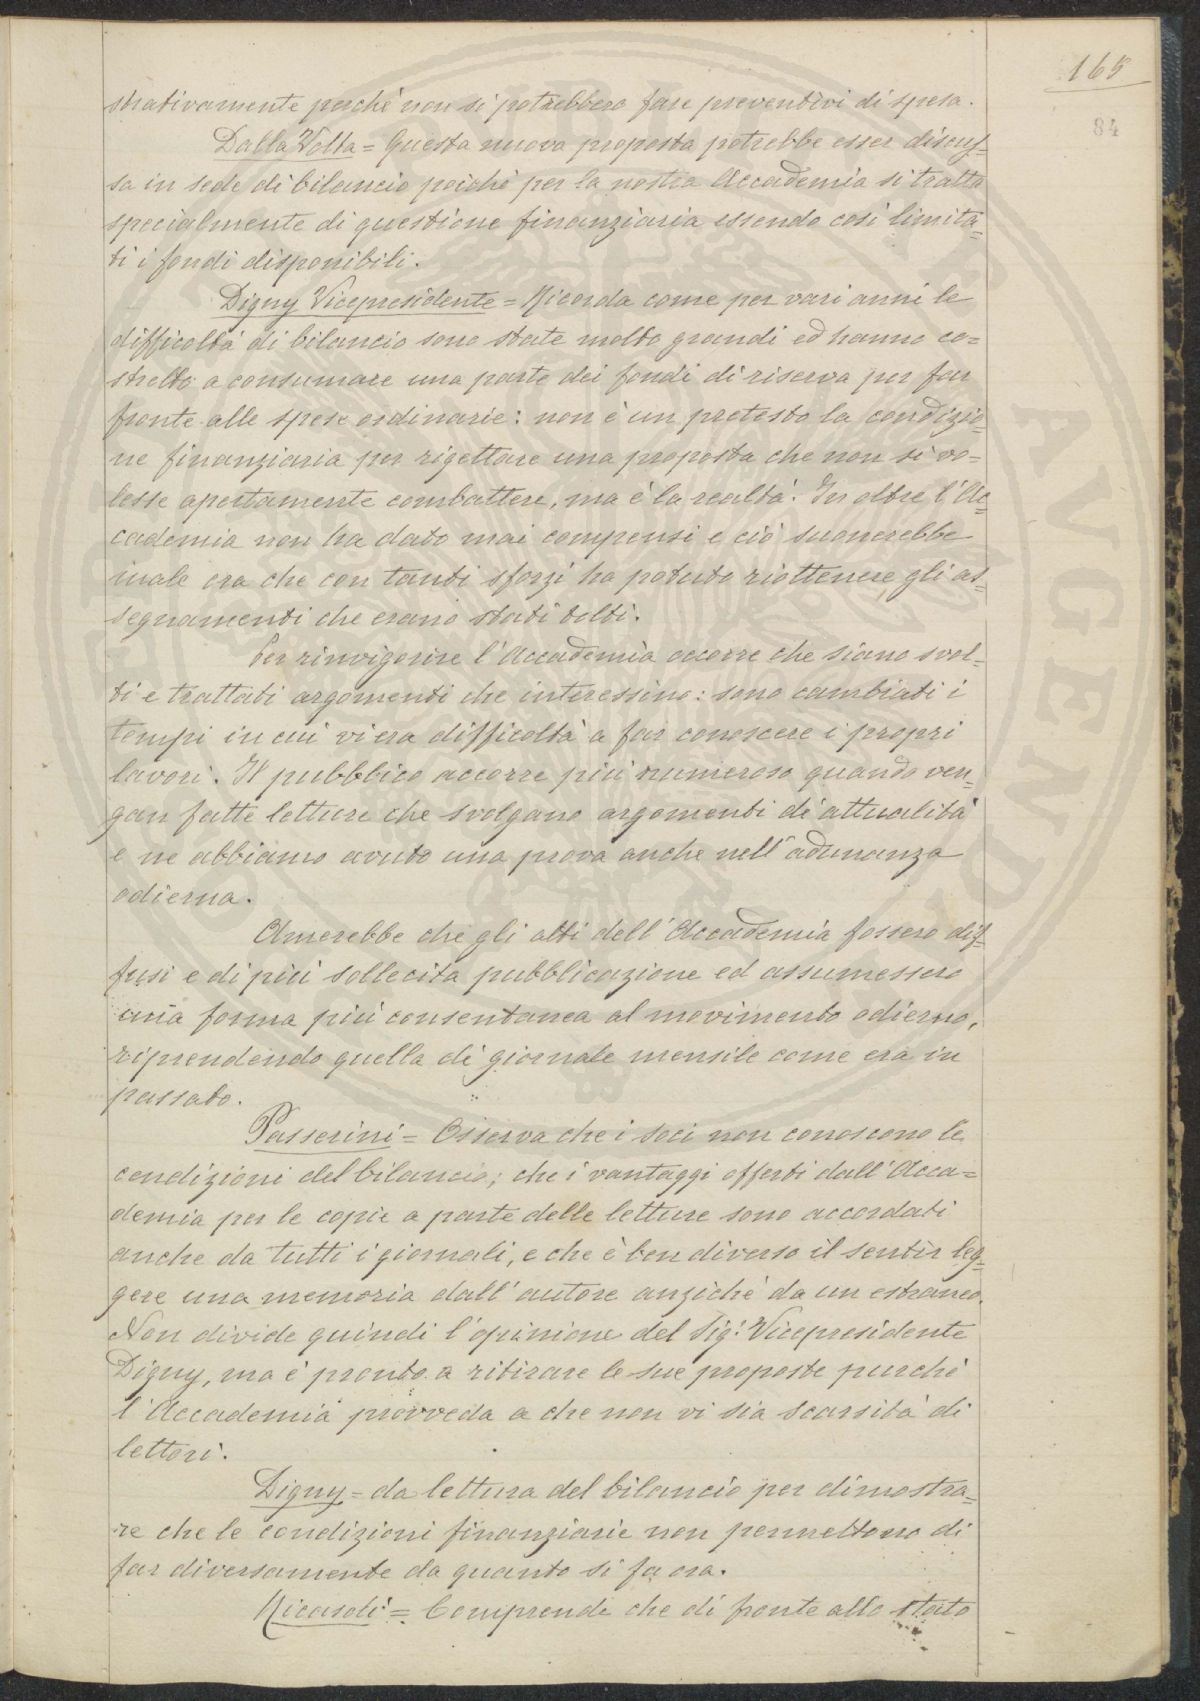 165
84
strativamente perchè non si potrebbero fare preventivi di spesa.
Dalla Volta = Questa nuova proposta potrebbe esser discus=
sa in sede di bilancio poichè per la nostra Accademia si tratta
specialmente di questione finanziaria essendo così limita=
ti i fondi disponibili.
Digny Vicepresidente = Ricorda come per vari anni le
difficoltà di bilancio sono state molto grandi ed hanno co=
stretto a consumare una parte dei fondi di riserva per far
fronte alle spese ordinarie: non è un pretesto la condizio=
ne finanziaria per rigettare una proposta che non si vo=
lesse apertamente combattere, ma è la realtà. In oltre l'Ac=
cademia non ha dato mai compensi e ciò suonerebbe
male ora che con tanti sforzi ha potuto riottenere gli as=
segnamenti che erano stati tolti.
Per rinvigorire l'Accademia occorre che siano svol=
ti e trattati argomenti che interessino: sono cambiati i
tempi in cui vi era difficoltà a far conoscere i propri
lavori. Il pubblico accorre più numeroso quando ven=
gan fatte letture che svolgano argomenti di attualità
e ne abbiamo avuto una prova anche nell'adunanza
odierna.
Amerebbe che gli atti dell'Accademia fossero dif=
fusi e di più sollecita pubblicazione ed assumessero
una forma più consentanea al movimento odierno,
riprendendo quella di giornale mensile come era in
passato.
Passerini = Osserva che i soci non conoscono le
condizioni del bilancio; che i vantaggi offerti dall'Acca=
demia per le copie a parte delle letture sono accordati
anche da tutti i giornali, e che è ben diverso il sentir leg=
gere una memoria dall'autore anzichè da un estraneo.
Non divide quindi l'opinione del Sig: Vicepresidente
Digny, ma è pronto a ritirare le sue proposte purchè
l'Accademia provveda a che non vi sia scarsità di
lettori.
Digny = da lettura del bilancio per dimostra=
re che le condizioni finanziarie non permettono di
far diversamente da quanto si fa ora.
Ricasoli = Comprende che di fronte allo stato